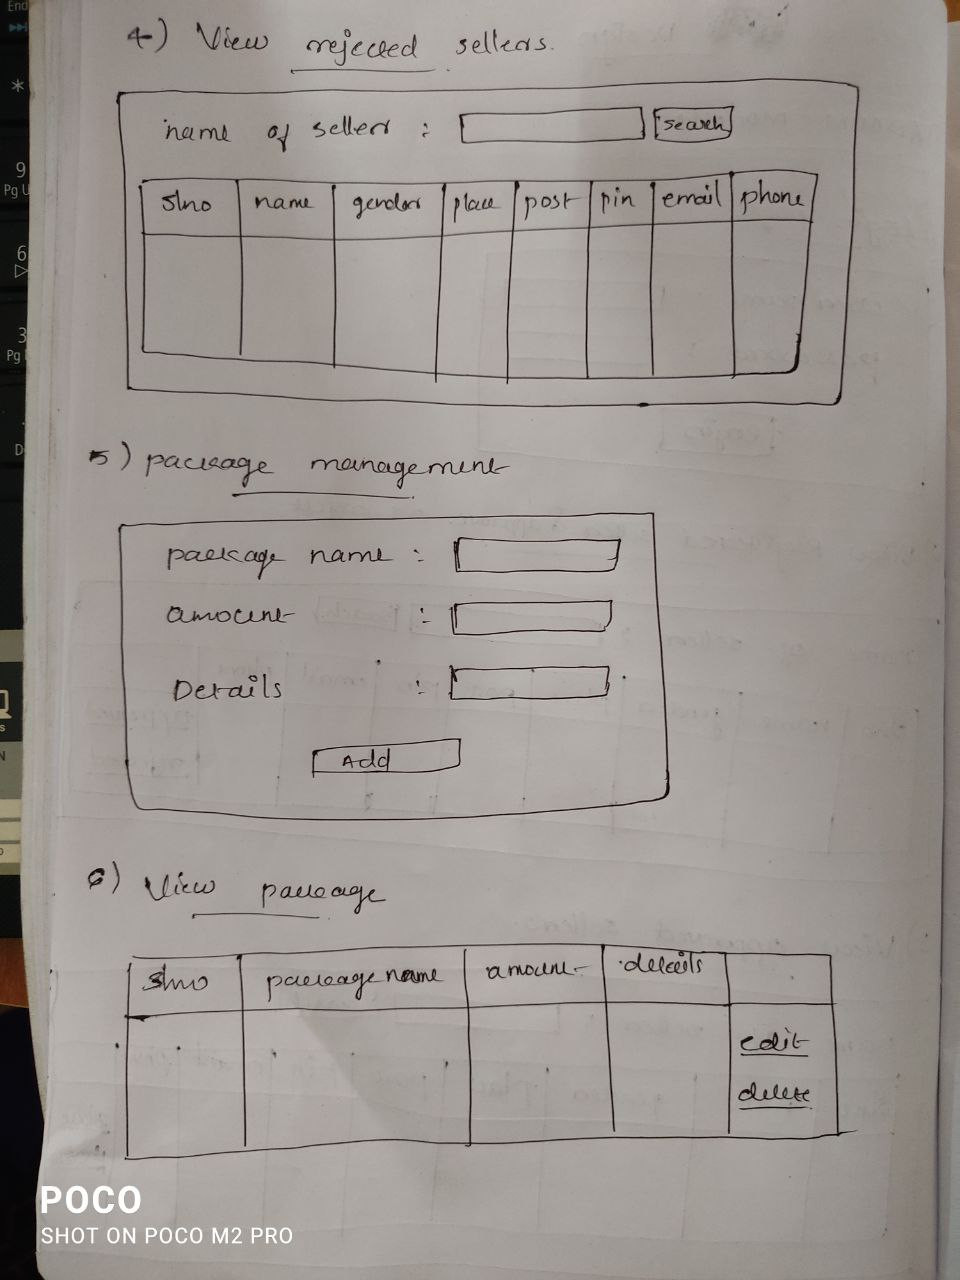 4) View rejected sellers.
name of seller : search
slno name gender place post pin email phone
5) package management
package name :
amount :
Details :
Add
6) View package
slno package name amount details
edit
delete
POCO
SHOT ON POCO M2 PRO
End
*
9
Pg U
6
3
Pg
D